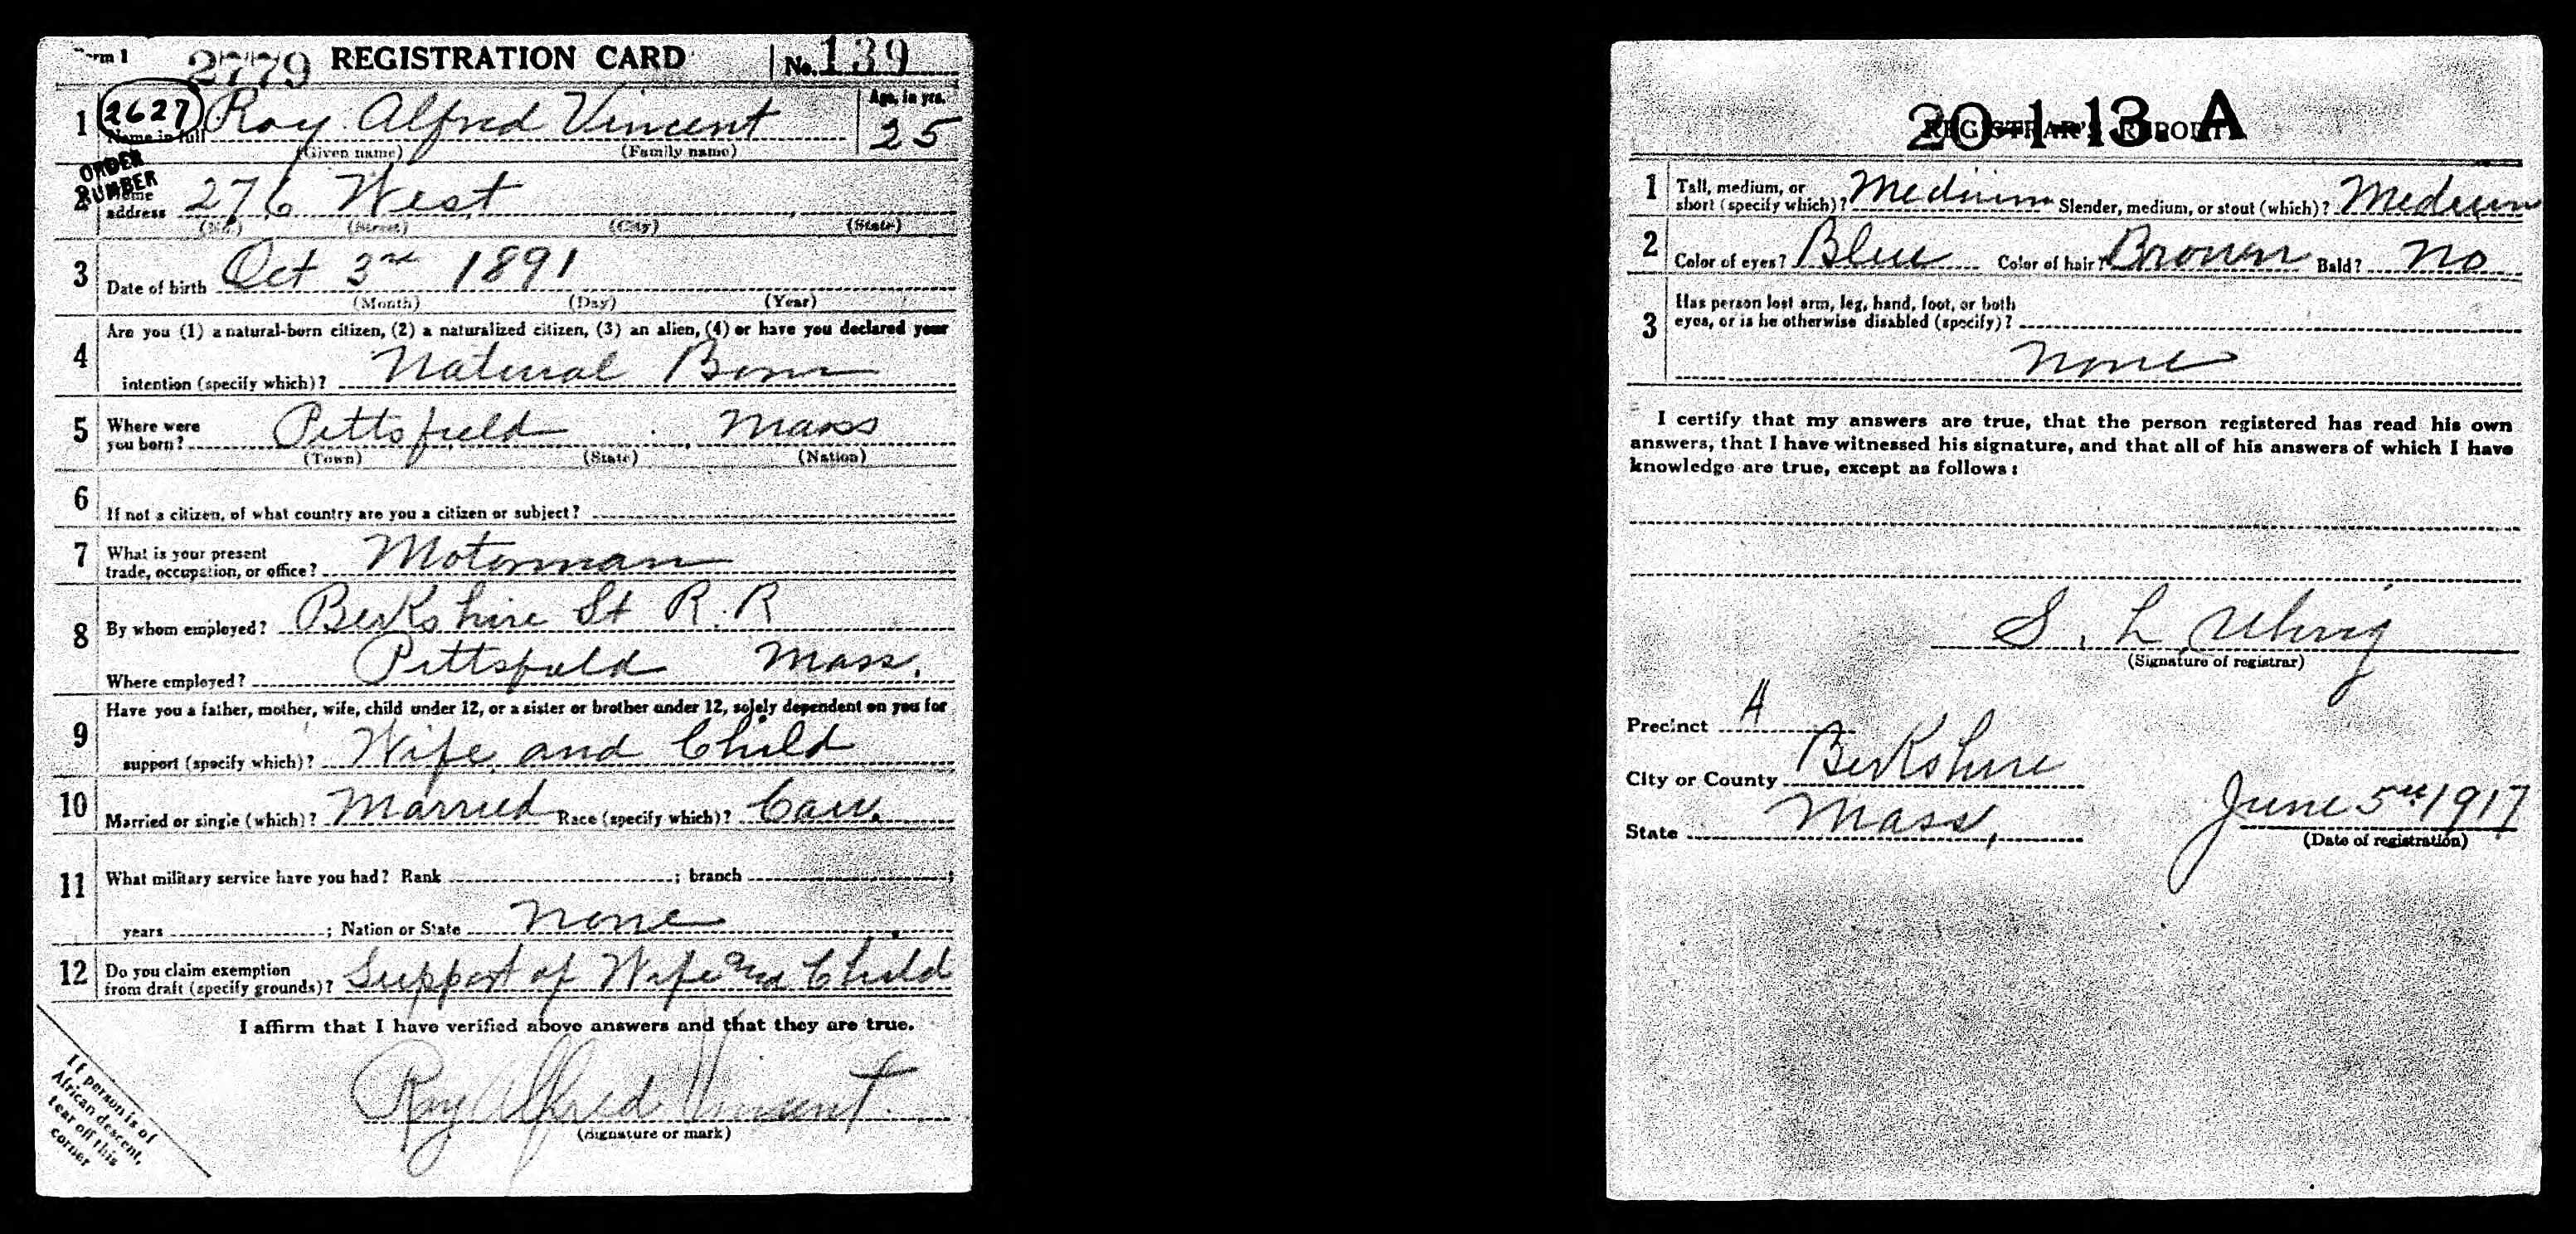 Form 1 2779 REGISTRATION CARD No. 139
1 2627 Name in full Roy Alfred Vincent Age, in yrs. 25
(Given name) (Family name)
ORDER NUMBER
2 Home address 276 West
(No.) (Street) (City) (State)
3 Date of birth Oct 3rd 1891
(Month) (Day) (Year)
4 Are you (1) a natural-born citizen, (2) a naturalized citizen, (3) an alien, (4) or have you declared your
intention (specify which)? Natural Born
5 Where were you born? Pittsfield Mass
(Town) (State) (Nation)
6 If not a citizen, of what country are you a citizen or subject?
7 What is your present trade, occupation, or office? Motorman
8 By whom employed? Berkshire St R.R
Where employed? Pittsfield Mass.
9 Have you a father, mother, wife, child under 12, or a sister or brother under 12, solely dependent on you for
support (specify which)? Wife and Child
10 Married or single (which)? Married Race (specify which)? Cau.
11 What military service have you had? Rank ; branch ;
years ; Nation or State None
12 Do you claim exemption from draft (specify grounds)? Support of Wife and Child
I affirm that I have verified above answers and that they are true.
Roy Alfred Vincent
(Signature or mark)
If person is of
African descent,
tear off this
corner
20-1-13. A
REGISTRAR'S REPORT
1 Tall, medium, or short (specify which)? Medium Slender, medium, or stout (which)? Medium
2 Color of eyes? Blue Color of hair? Brown Bald? No
3 Has person lost arm, leg, hand, foot, or both
eyes, or is he otherwise disabled (specify)?
None
I certify that my answers are true, that the person registered has read his own
answers, that I have witnessed his signature, and that all of his answers of which I have
knowledge are true, except as follows:
S. L.
(Signature of registrar)
Precinct A
City or County Berkshire
State Mass, June 5th 1917
(Date of registration)